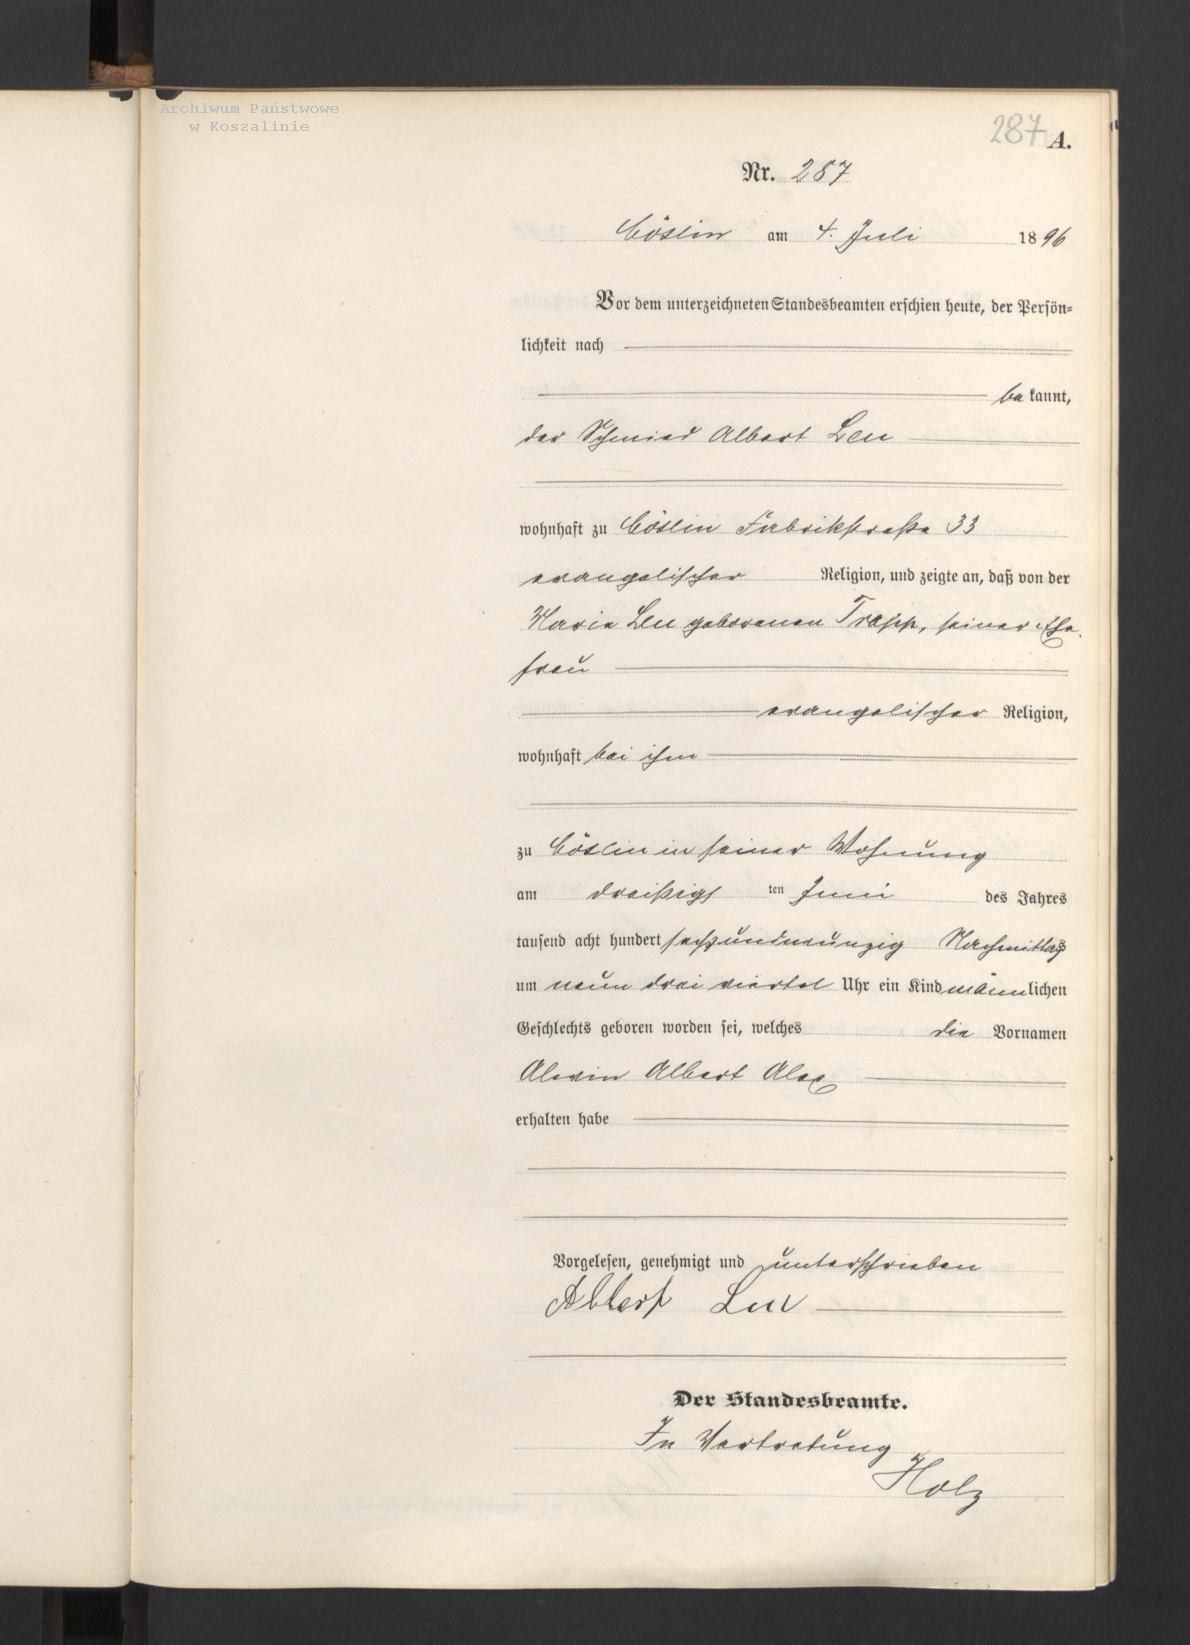 Archiwum Państwowe
w Koszalinie
287 A.
Nr. 287
Cöslin am 4. Juli 1896
Vor dem unterzeichneten Standesbeamten erschien heute, der Persön-
lichkeit nach
bekannt,
der Schmied Albert Leu
wohnhaft zu Cöslin Fabrikstraße 33
evangelischer Religion, und zeigte an, daß von der
Marie Leu geborenen Trapp, seiner Ehe-
frau
evangelischer Religion,
wohnhaft bei ihm
zu Cöslin in seiner Wohnung
am dreißigsten Juni des Jahres
tausend acht hundert sechsundneunzig Nachmittags
um neun drei viertel Uhr ein Kind männlichen
Geschlechts geboren worden sei, welches die Vornamen
Albert Alex
erhalten habe
Vorgelesen, genehmigt und unterschrieben
Albert Leu
Der Standesbeamte.
In Vertretung
Holz